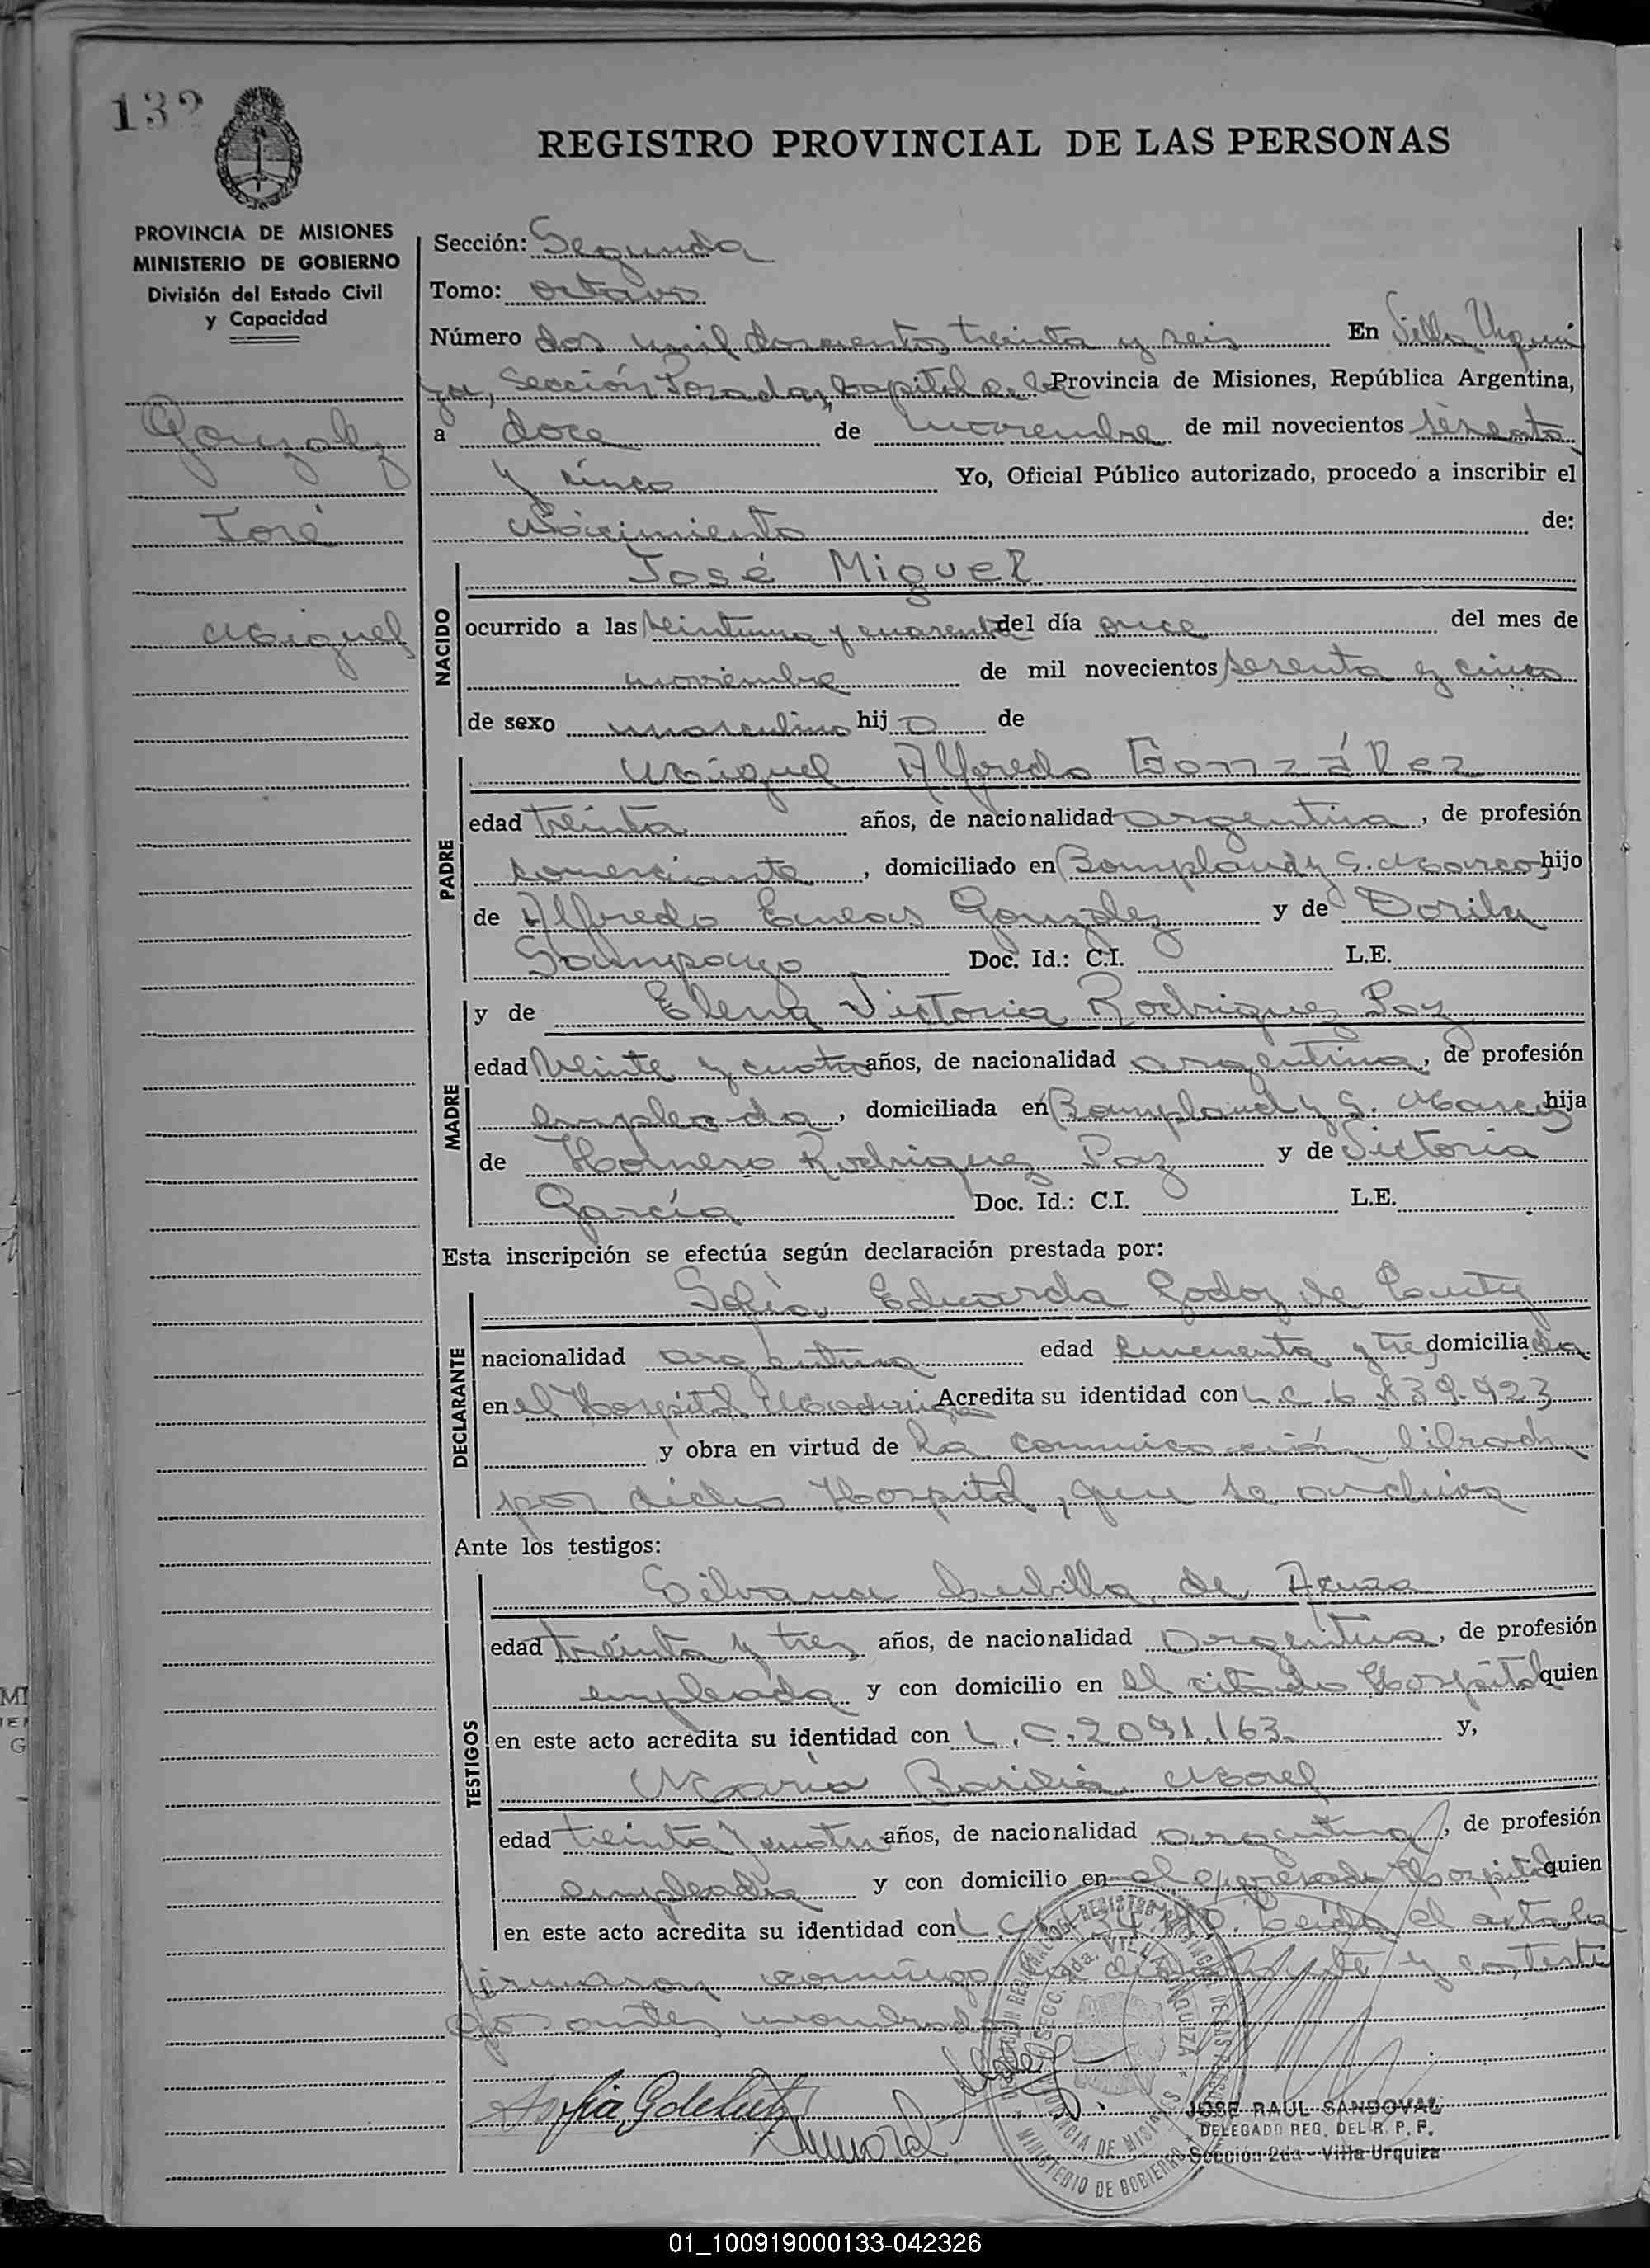 132
REGISTRO PROVINCIAL DE LAS PERSONAS
PROVINCIA DE MISIONES
MINISTERIO DE GOBIERNO
División del Estado Civil
y Capacidad
Gonzalez
José
Miguel
Sección: Segunda
Tomo: octavo
Número dos mil doscientos treinta y seis En Villa Urqui
za, Sección Posadas, Capital de la Provincia de Misiones, República Argentina,
a doce de noviembre de mil novecientos sesenta
y cinco Yo, Oficial Público autorizado, procedo a inscribir el
Nacimiento de:
NACIDO
José Miguel
ocurrido a las veintiuna y cuarenta del día once del mes de
noviembre de mil novecientos sesenta y cinco
de sexo masculino hijo de
PADRE
Miguel Alfredo González
edad treinta años, de nacionalidad argentina, de profesión
comerciante, domiciliado en Bompland y S. Marcos hijo
de Alfredo Eneas Gonzalez y de Dorila
Sampayo Doc. Id.: C.I. L.E.
MADRE
y de Elena Victoria Rodriguez Paz
edad veinte y cuatro años, de nacionalidad argentina, de profesión
empleada, domiciliada en Bompland y S. Marcos hija
de Homero Rodriguez Paz y de Victoria
García Doc. Id.: C.I. L.E.
Esta inscripción se efectúa según declaración prestada por:
DECLARANTE
Sofía Eduarda Godoy de
nacionalidad argentina edad cincuenta y tres domiciliada
en el Hospital Madariaga Acredita su identidad con L.C. 6.839.923
y obra en virtud de la comunicación librada
por dicho Hospital, que se archiva
Ante los testigos:
TESTIGOS
Silvana de Acuza
edad treinta y tres años, de nacionalidad argentina, de profesión
empleada y con domicilio en el citado Hospital quien
en este acto acredita su identidad con L.C. 2.091.163 y,
María Basilia Morel
edad treinta y cuatro años, de nacionalidad argentina, de profesión
empleada y con domicilio en el expresado Hospital quien
en este acto acredita su identidad con L.C. Leída el acta la
firmaron conmigo la declarante y los testi
gos antes nombrados
JOSE RAUL SANDOVAL
DELEGADO REG. DEL R. P. P.
Sección 2da - Villa Urquiza
01_100919000133-042326